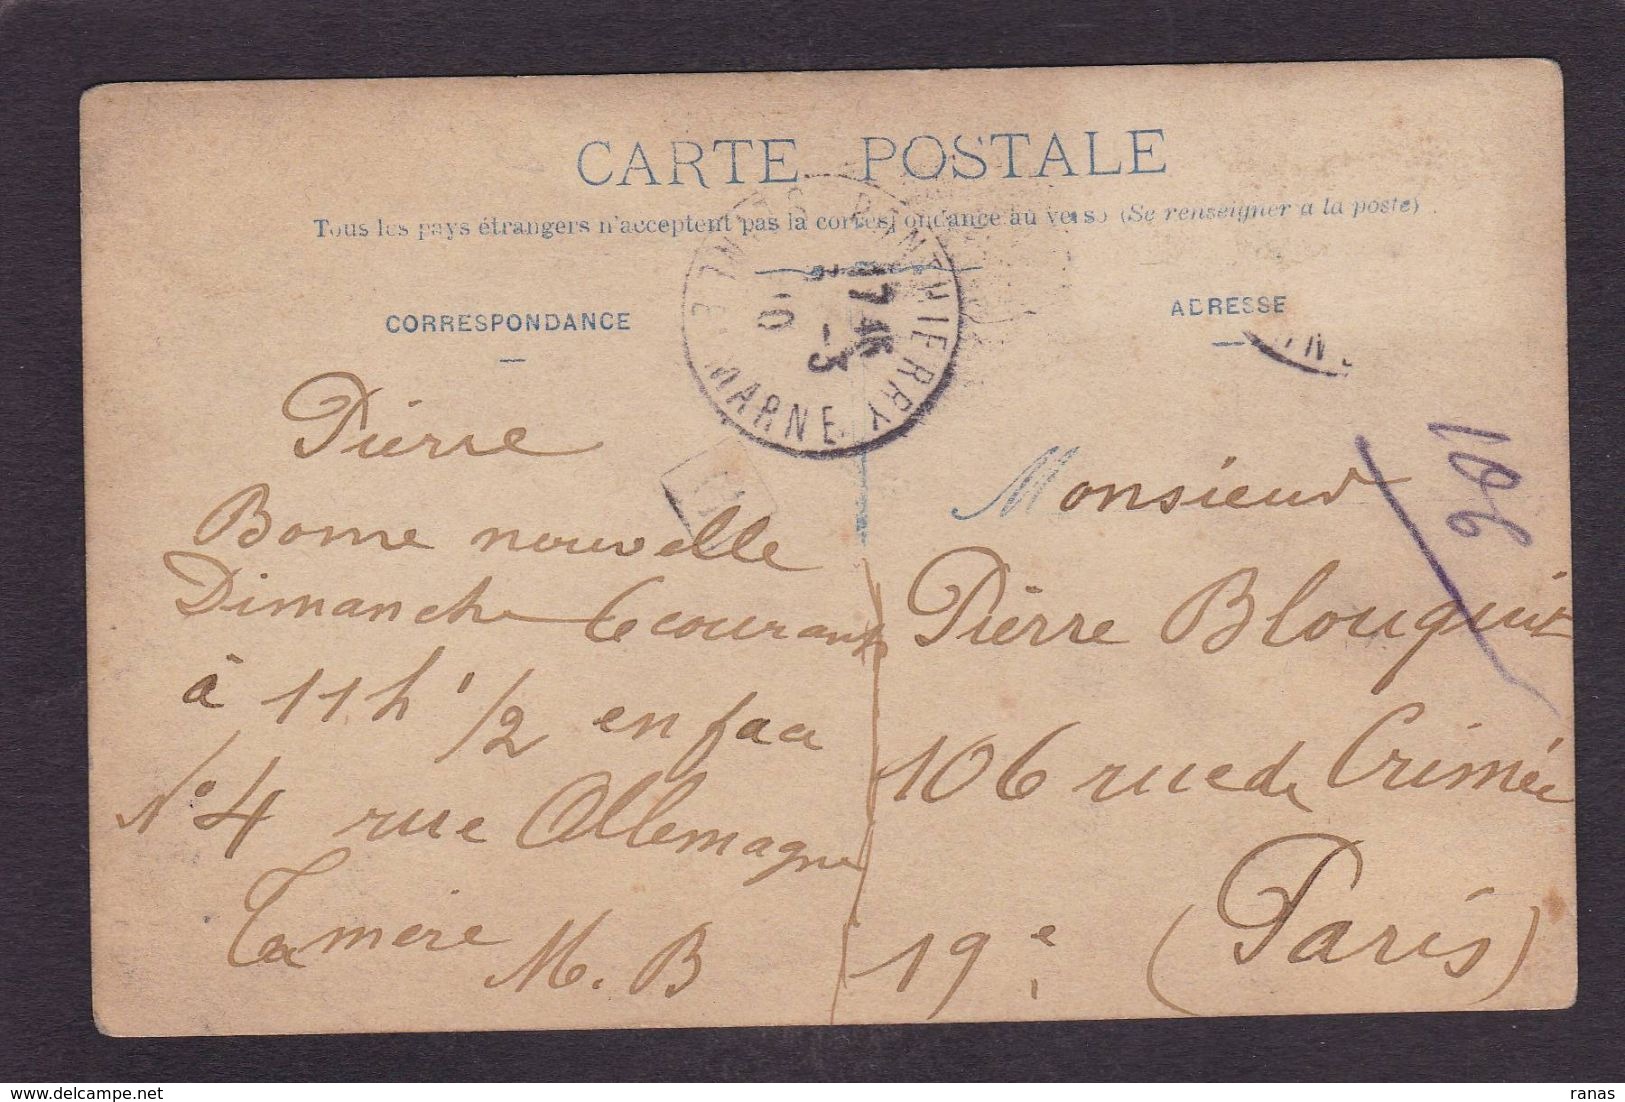 CARTE POSTALE
Tous les pays étrangers n'acceptent pas la correspondance au verso (Se renseigner à la poste)
CORRESPONDANCE
ADRESSE
PIERRY
MARNE
17 45
-3
10
Pierre
Bonne nouvelle
Dimanche 6 courant
à 11 h 1/2 en face
N° 4 rue Allemagne
Ta mère
M. B
Monsieur
Pierre Blouquit
106 rue de Crimée
19e (Paris)
ranas